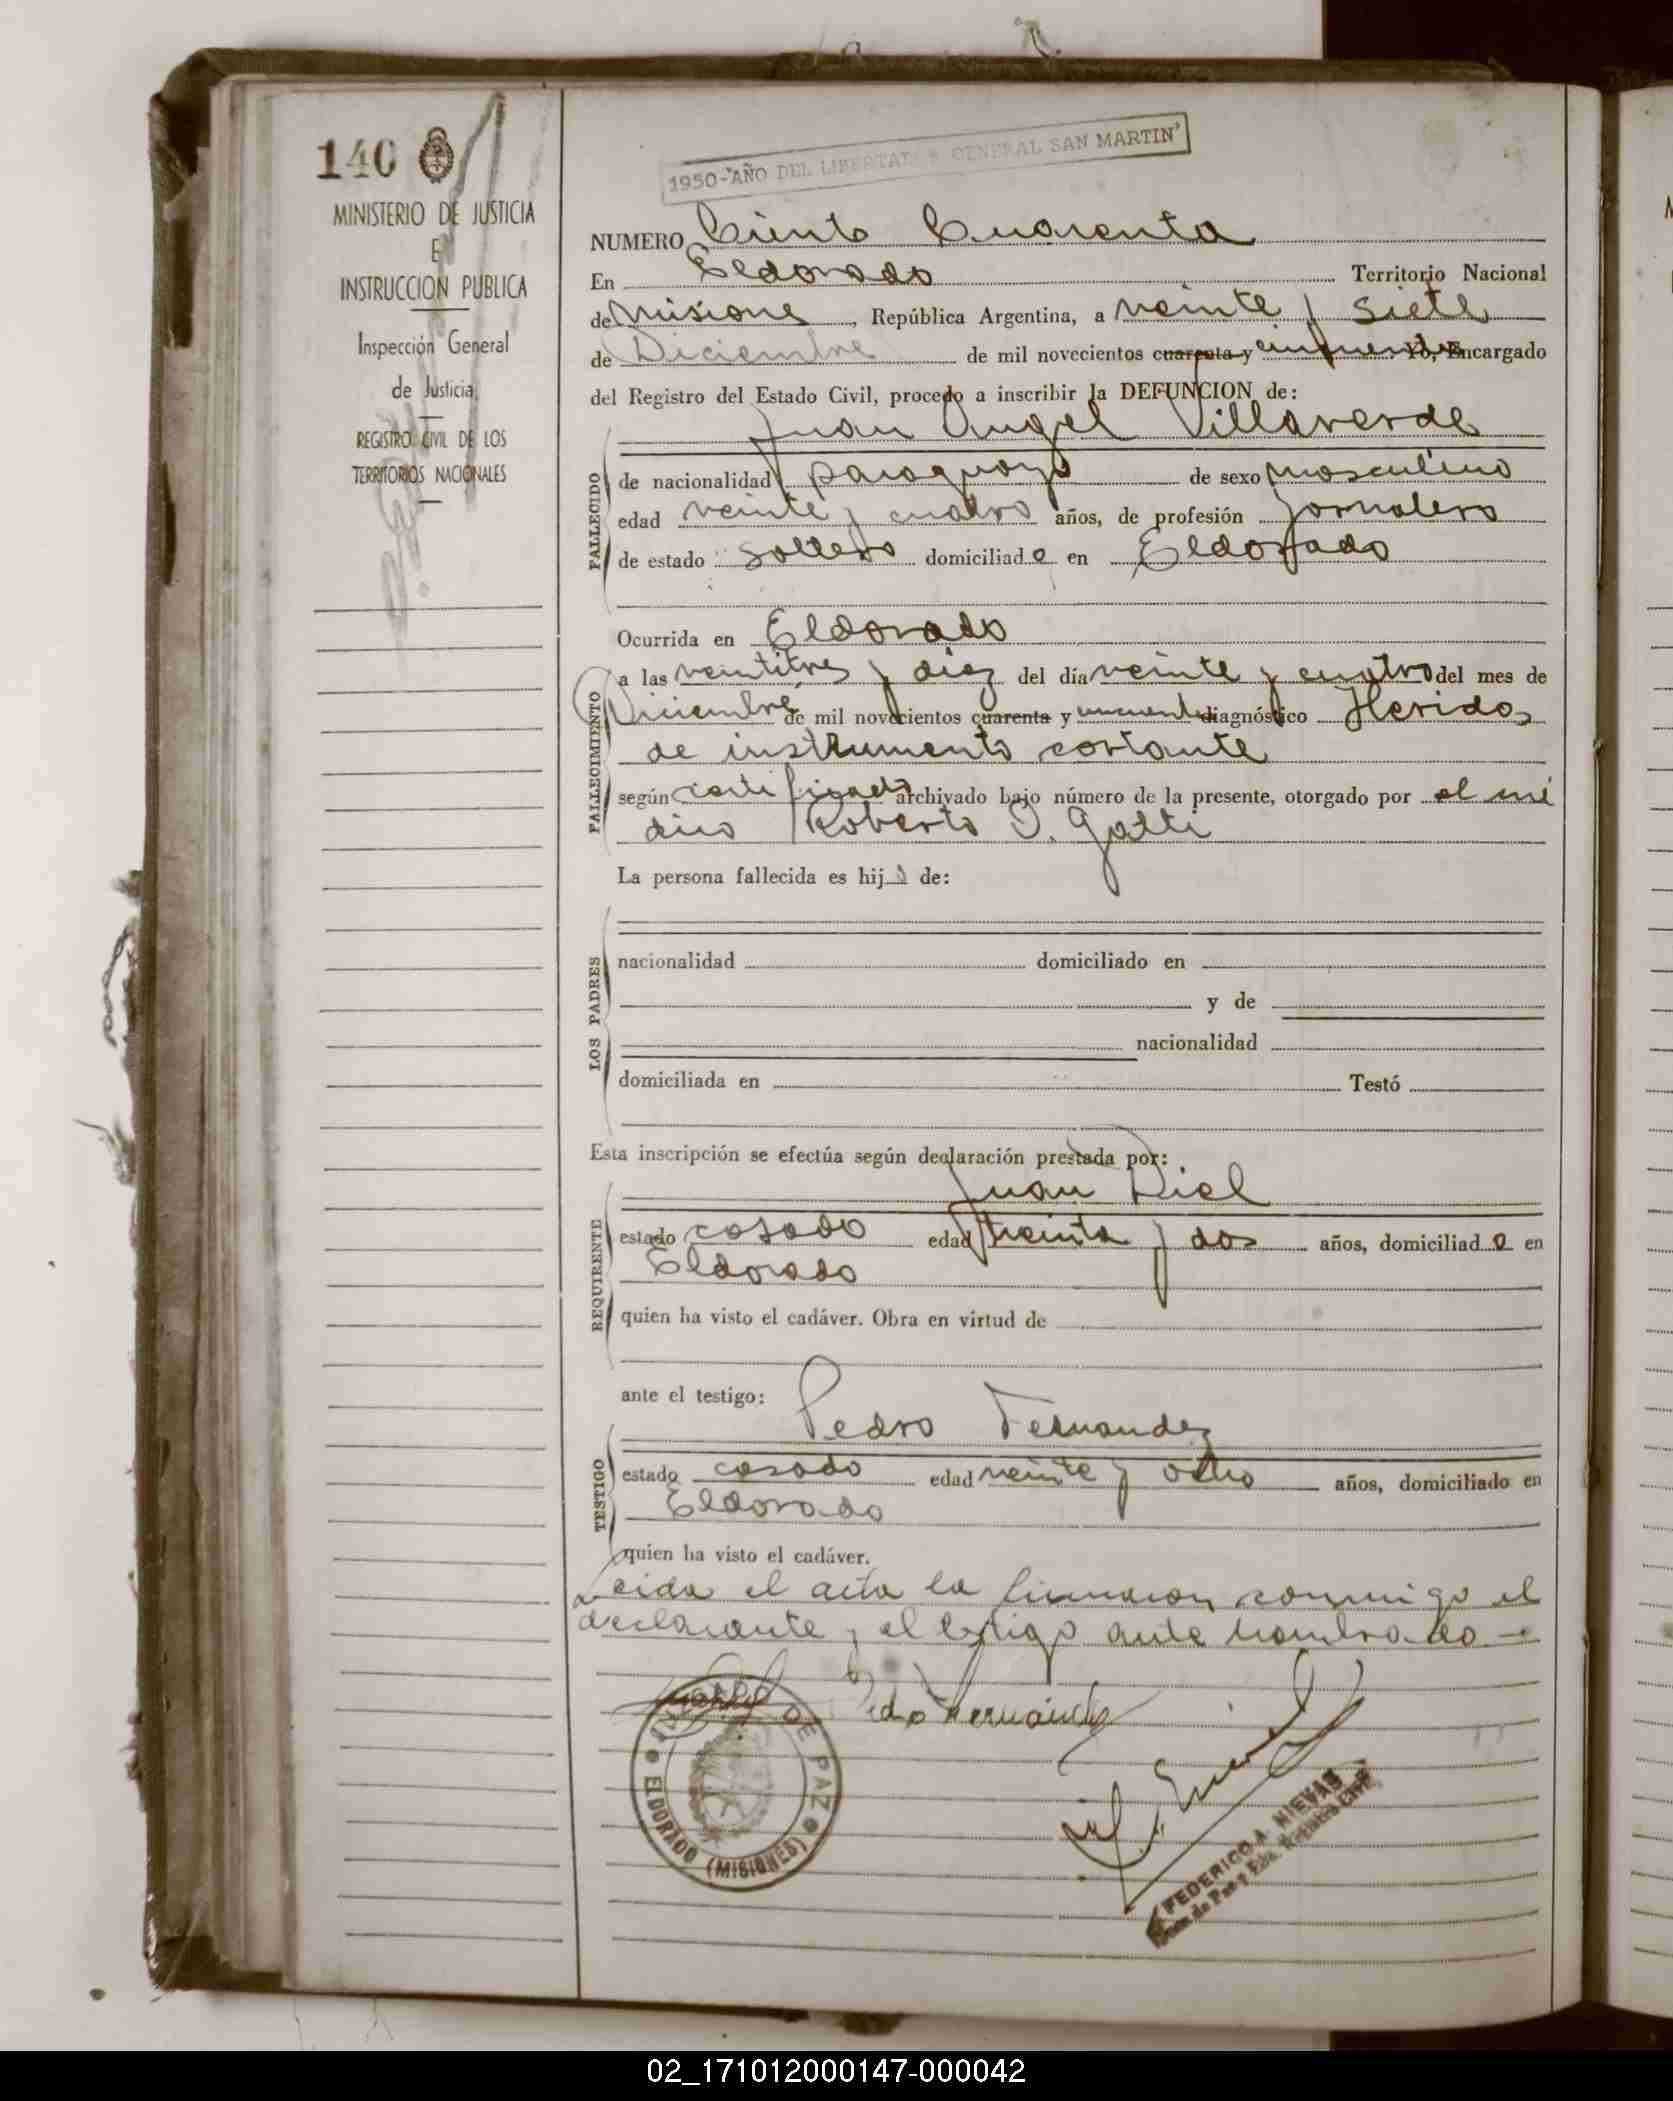 140
MINISTERIO DE JUSTICIA
E
INSTRUCCION PUBLICA
Inspección General
de Justicia
REGISTRO CIVIL DE LOS
TERRITORIOS NACIONALES
1950-"AÑO DEL LIBERTADOR GENERAL SAN MARTIN"
NUMERO Ciento Cuarenta
En Eldorado Territorio Nacional
de Misiones, República Argentina, a veinte y siete
de Diciembre de mil novecientos cuarenta y cincuenta. Yo, Encargado
del Registro del Estado Civil, procedo a inscribir la DEFUNCION de:
Juan Angel Villaverde
FALLECIDO
de nacionalidad paraguayo de sexo masculino
edad veinte y cuatro años, de profesión jornalero
de estado soltero domiciliado en Eldorado
Ocurrida en Eldorado
FALLECIMIENTO
a las veintitres y diez del día veinte y cuatro del mes de
Diciembre de mil novecientos cuarenta y cincuenta diagnóstico Heridas
de instrumento cortante
según certificado archivado bajo número de la presente, otorgado por el mé
dico Roberto J. Gatti
La persona fallecida es hijo de:
LOS PADRES
nacionalidad domiciliado en
y de
nacionalidad
domiciliada en Testó
Esta inscripción se efectúa según declaración prestada por:
Juan Riel
REQUIRENTE
estado casado edad treinta y dos años, domiciliado en
Eldorado
quien ha visto el cadáver. Obra en virtud de
ante el testigo:
Pedro Fernandez
TESTIGO
estado casado edad veinte y ocho años, domiciliado en
Eldorado
quien ha visto el cadáver.
Leida el acta la firmaron conmigo el
declarante y el testigo ante nombrado
Pedro Fernández
JUZGADO DE PAZ
ELDORADO (MISIONES)
FEDERICO A. NIEVAS
Juez de Paz y Edo. Registro Civil
02_171012000147-000042